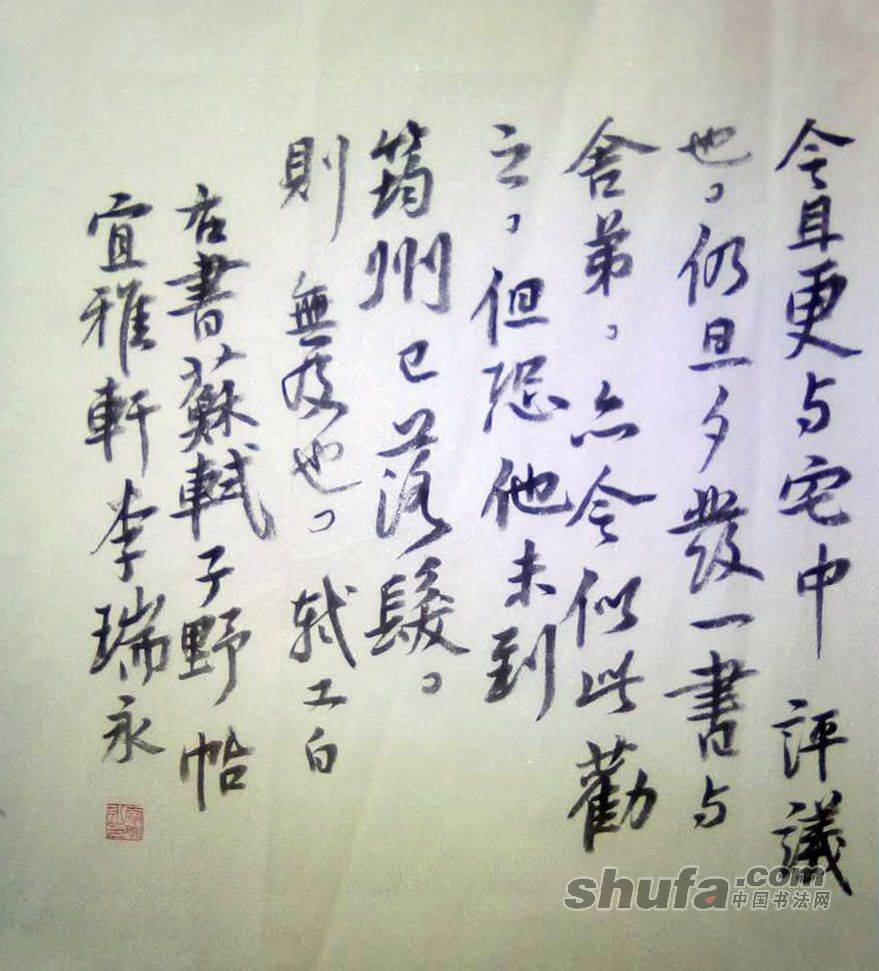 令耳更与宅中評議
也。仍旦夕發一書与
舍弟。亦令似此勸
之。但恐他未到
筠州已落髮。
則無及也。軾又白
右書蘇軾子野帖
宜雅軒李瑞永
shufa.com
中国书法网